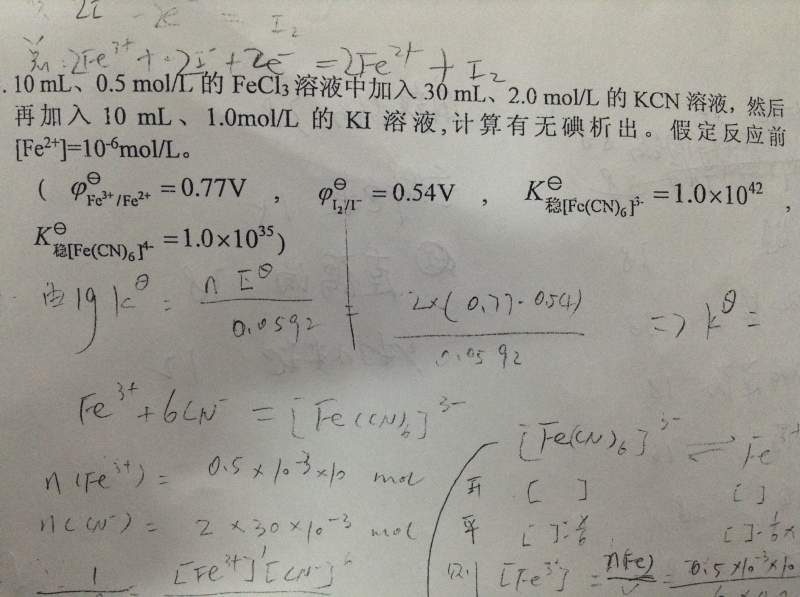 2I⁻ - 2e⁻ = I₂
总: 2Fe³⁺ + 2I⁻ + 2e⁻ = 2Fe²⁺ + I₂
. 10 mL、0.5 mol/L 的 FeCl₃ 溶液中加入 30 mL、2.0 mol/L 的 KCN 溶液，然后
再加入 10 mL、1.0mol/L 的 KI 溶液,计算有无碘析出。假定反应前
[Fe²⁺]=10⁻⁶mol/L。
( φ⊖Fe³⁺/Fe²⁺ = 0.77V ， φ⊖I₂/I⁻ = 0.54V ， K⊖稳[Fe(CN)₆]³⁻ = 1.0×10⁴² ，
K⊖稳[Fe(CN)₆]⁴⁻ = 1.0×10³⁵)
由 lg k^θ = n E^θ / 0.0592 = 2×(0.77-0.54) / 0.0592 => k^θ =
Fe³⁺ + 6CN⁻ = [Fe(CN)₆]³⁻
n(Fe³⁺) = 0.5×10⁻³×10 mol
n(CN⁻) = 2×30×10⁻³ mol
1 [Fe³⁺]¹[CN⁻]⁶
[Fe(CN)₆]³⁻ ⇌ Fe³⁺
开 [ ] [ ]
平 [ ]-x/6 [ ]-1/6x
则 [Fe³⁺] = n(Fe)/V = 0.5×10⁻³×10